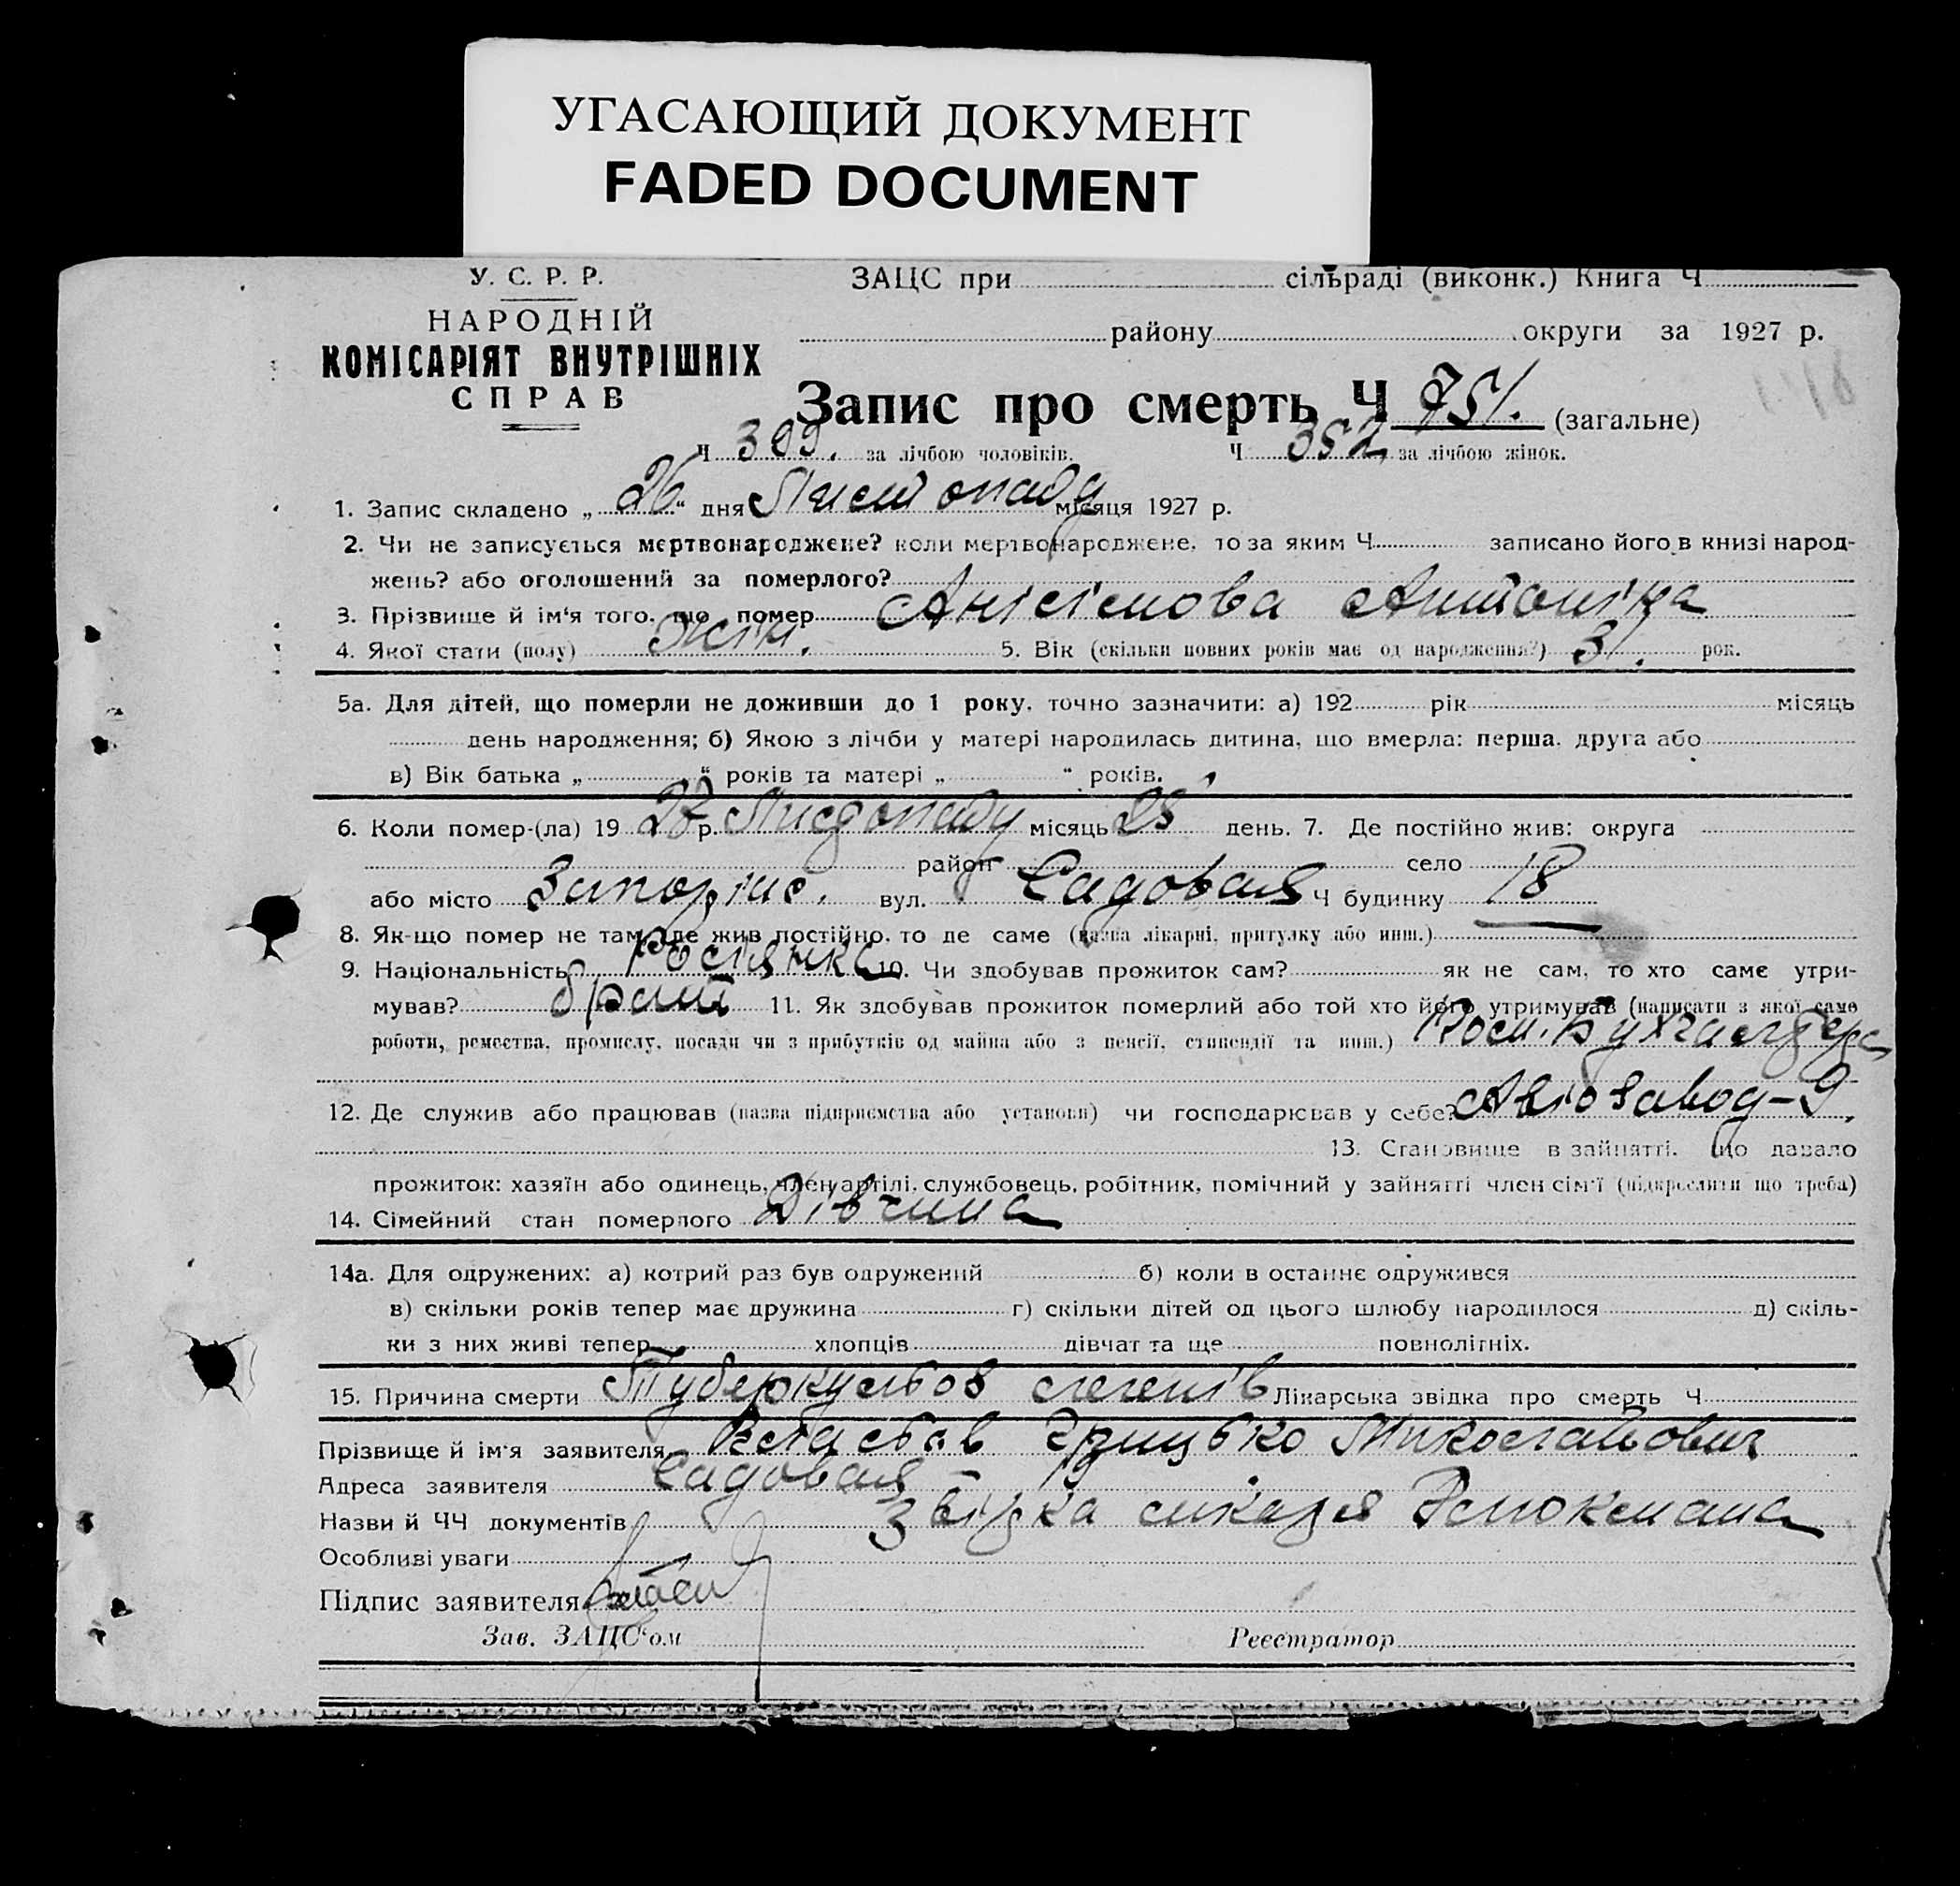 УГАСАЮЩИЙ ДОКУМЕНТ
FADED DOCUMENT
У. С. Р. Р.
НАРОДНІЙ
КОМІСАРІЯТ ВНУТРІШНІХ
СПРАВ
ЗАЦС при сільраді (виконк.) Книга Ч
району округи за 1927 р.
Запис про смерть Ч 751. (загальне)
Ч 399. за лічбою чоловіків. Ч 352 за лічбою жінок.
1. Запис складено „ 26 “ дня Листопаду місяця 1927 р.
2. Чи не записується мертвонароджене? коли мертвонароджене, то за яким Ч записано його в книзі народ-
жень? або оголошений за померлого?
3. Прізвище й ім‘я того, що помер Анісімова Антоніна
4. Якої стати (полу) Жін. 5. Вік (скільки повних років має од народження?) 31. рок.
5а. Для дітей, що померли не доживши до 1 року, точно зазначити: а) 192 рік місяць
день народження; б) Якою з лічби у матері народилась дитина, що вмерла: перша, друга або
в) Вік батька „ “ років та матері „ “ років.
6. Коли помер-(ла) 19 27 р. Листопаду місяць 25 день. 7. Де постійно жив: округа
район село
або місто Запоріже. вул. Садовая Ч будинку 18
8. Як-що помер не там, де жив постійно, то де саме (назва лікарні, притулку або инш.)
9. Національність Росіянка 10. Чи здобував прожиток сам? як не сам, то хто саме утри-
мував? брат 11. Як здобував прожиток померлий або той хто його утримував (написати з якої саме
роботи, ремества, промислу, посади чи з прибутків од майна або з пенсії, стипендії та инш.) Пом. Бухгалтера
12. Де служив або працював (назва підприємства або установи) чи господарював у себе? Авіозавод-9.
13. Становище в зайнятті, що давало
прожиток: хазяїн або одинець, член артілі, службовець, робітник, помічний у зайнятті член сім‘ї (підкреслити що треба)
14. Сімейний стан померлого Дівчина
14а. Для одружених: а) котрий раз був одружений б) коли в останнє одружився
в) скільки років тепер має дружина г) скільки дітей од цього шлюбу народилося д) скіль-
ки з них живі тепер хлопців дівчат та ще повнолітніх.
15. Причина смерти Туберкульоз легенів Лікарська звідка про смерть Ч
Прізвище й ім‘я заявителя Грицько Миколайович
Адреса заявителя Садовая
Назви й ЧЧ документів Звідка лікаря
Особливі уваги
Підпис заявителя
Зав. ЗАЦС‘ом Реєстратор